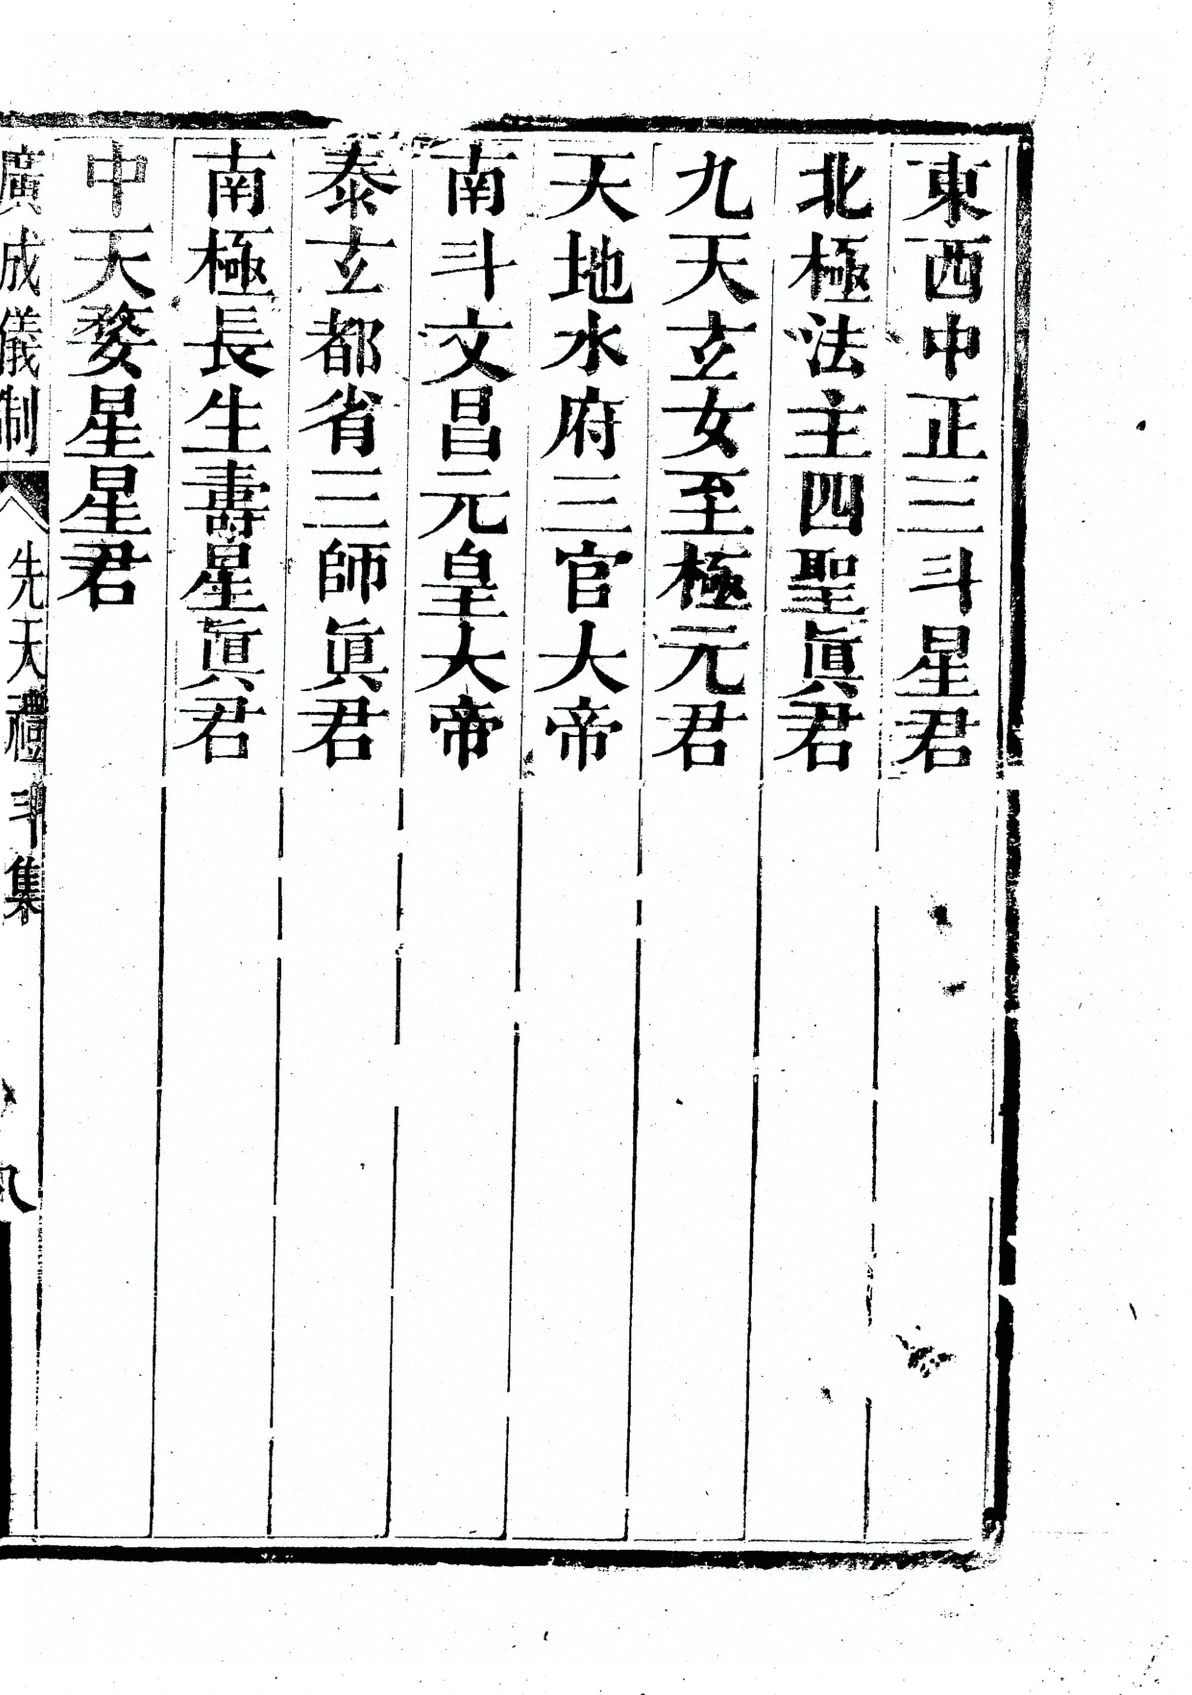 東西中正三斗星君
北極法主四聖眞君
九天玄女至極元君
天地水府三官大帝
南斗文昌元皇大帝
泰玄都省三師眞君
南極長生壽星眞君
中天婺星星君
廣成儀制 先天禮斗集 八